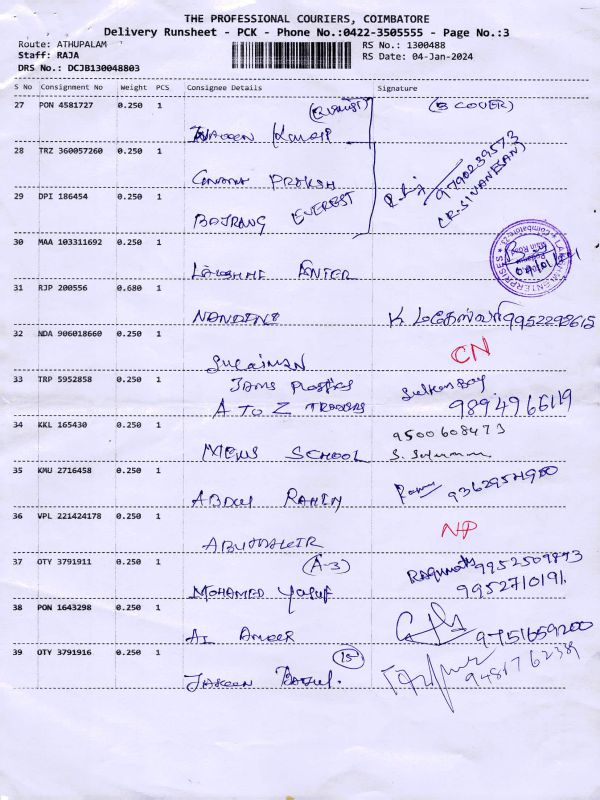 THE PROFESSIONAL COURIERS, COIMBATORE
Delivery Runsheet - PCK - Phone No.:0422-3505555 - Page No.:3
Route: ATHUPALAM RS No.: 1300488
Staff: RAJA RS Date: 04-Jan-2024
DRS No.: DCJB130048803
S No Consignment No Weight PCS Consignee Details Signature
27 PON 4581727 0.250 1 (B COVER)
28 TRZ 360057260 0.250 1
PRAKASH 9790239573
29 DPI 186454 0.250 1 EVEREST (R.SIVANESAN)
BAJRANG
30 MAA 103311692 0.250 1
LAKSHMI ENTER
31 RJP 200556 0.680 1
NANDINI K மகேஸ்வரி 9952298615
32 NDA 906018660 0.250 1 CN
SULAIMAN
33 TRP 5952858 0.250 1 JAMS PLASTICS
A TO Z TRADERS 9894966119
34 KKL 165430 0.250 1 9500608473
MEWS SCHOOL
35 KMU 2716458 0.250 1
ABDUL RAHIM
36 VPL 221424178 0.250 1 NP
ABUTHAHIR
37 OTY 3791911 0.250 1 (A-3) 9952509873
MOHAMED Yusuf 9952710191
38 PON 1643298 0.250 1
AL AMEER 9751659200
39 OTY 3791916 0.250 1 15